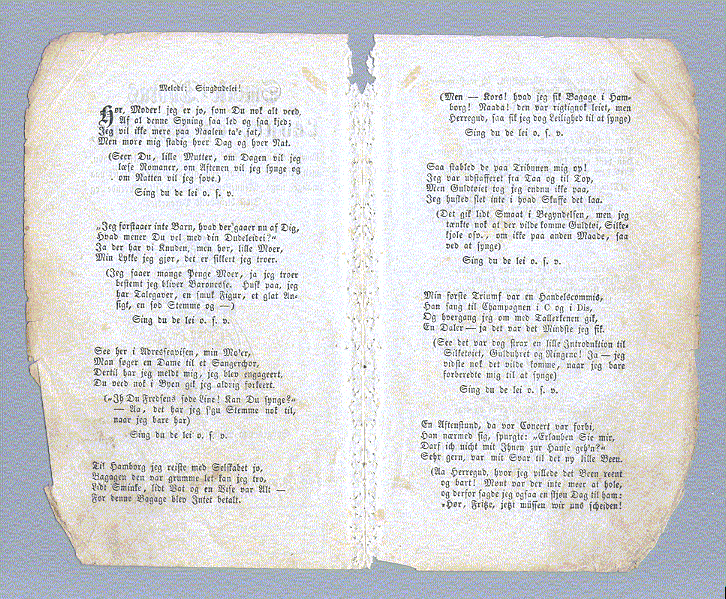 Melodi: Singdudelei!
Hør, Moder! jeg er jo, som Du nok alt veed,
Af at denne Syning saa led og saa kjed;
Jeg vil ikke mere paa Naalen ta'e fat,
Men more mig stadig hver Dag og hver Nat.
(Seer Du, lille Mutter, om Dagen vil jeg
læse Romaner, om Aftenen vil jeg synge og
om Natten vil jeg sove.)
Sing du de lei o. s. v.
„Jeg forstaaer inte Barn, hvad der gaaer nu af Dig,
Hvad mener Du vel med din Dudeleidei?“
Ja der har vi Knuden, men hør, lille Moer,
Min Lykke jeg gjør, det er sikkert jeg troer.
(Jeg faaer mange Penge Moer, ja jeg troer
bestemt jeg bliver Baronesse. Husk paa, jeg
har Talegaver, en smuk Figur, et glat An-
sigt, en sød Stemme og —)
Sing du de lei o. s. v.
See her i Adresseavisen, min Mo'er,
Man søger en Dame til et Sangerchor,
Dertil har jeg meldt mig, jeg blev engageert,
Du veed nok i Byen gik jeg aldrig forkeert.
(„Ih Du Fredsens søde Line! Kan Du synge?“
— Aa, det har jeg s'gu Stemme nok til,
naar jeg bare har)
Sing du de lei o. s. v.
Til Hamborg jeg reiste med Selskabet jo,
Bagagen den var grumme let kan jeg tro,
Lidt Sminke, lidt Vat og en Vise var Alt —
For denne Bagage blev Intet betalt.
(Men — Kors! hvad jeg fik Bagage i Ham-
borg! Naada! den var rigtignok leiet, men
Herregud, saa fik jeg dog Leilighed til at synge)
Sing du de lei o. s. v.
Saa stabled de paa Tribunen mig op!
Jeg var udstafferet fra Taa og til Top,
Men Guldtøiet tog jeg endnu ikke paa,
Jeg husked slet inte i hvad Skuffe det laa.
(Det gik lidt Smaat i Begyndelsen, men jeg
tænkte nok at der vilde komme Guldtøi, Silke-
kjole osv., om ikke paa anden Maade, saa
ved at synge)
Sing du de lei o. s. v.
Min første Triumf var en Handelscommis,
Han sang til Champagnen i C og i Dis,
Og hvergang jeg om med Tallerkenen gik,
En Daler — ja det var det Mindste jeg fik.
(See det var dog strax en lille Introduktion til
Silketøiet, Gulduhret og Ringene! Ja — jeg
vidste nok det vilde komme, naar jeg bare
forberedte mig til at synge)
Sing du de lei o. s. v.
En Aftenstund, da vor Concert var forbi,
Han nærmed sig, spurgte: „Erlauben Sie mir,
Darf ich nicht mit Ihnen zur Hause geh'n?“
Sehr gern, var mit Svar til det ny lille Been.
(Aa Herregud, hvor jeg vilde det Been reent
og bart! Mønt var der inte meer at hole,
og derfor sagde jeg ogsaa en skjøn Dag til ham:
„Hør, Fritze, jetzt müssen wir uns scheiden!